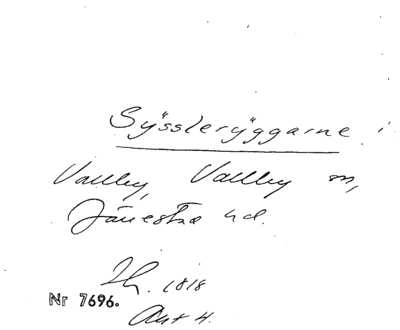 Sÿssleryggarne i
Vallby, Vallby sn,
Jänestra hd.
Th. 1818
Nr 7696.
Akt 4.